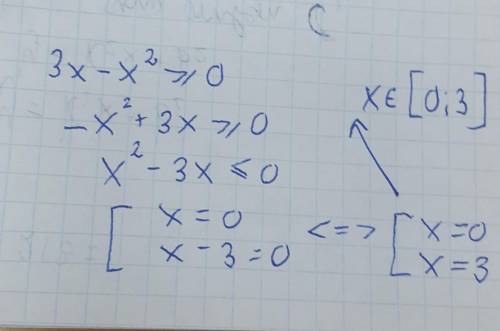 C
3x - x² ⩾ 0
- x² + 3x ⩾ 0
x² - 3x ⩽ 0
[ x = 0
x - 3 = 0
<=> [ x = 0
x = 3
x ∈ [0;3]